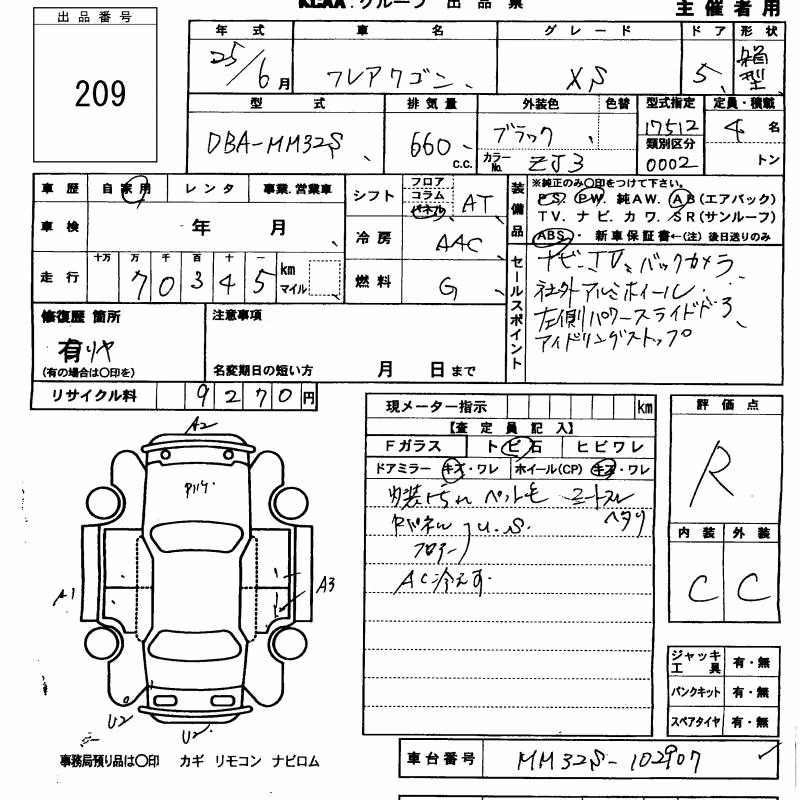 KCAA.グループ 出品票
主催者用
出品番号
209
年式 車名 グレード ドア 形状
25/6月 フレアワゴン XS 5 箱型
型式 排気量 外装色 色替 型式指定 定員・積載
DBA-MM32S 660 c.c. ブラック カラーNo. ZJ3 17512 4名
類別区分 0002 トン
車歴 自家用 レンタ 事業.営業車
車検 年 月
走行 十万 万 千 百 十 一
70345 km マイル
シフト フロア コラム パネル AT
冷房 AAC
燃料 G
装備品 ※純正のみ〇印をつけて下さい。
P.S. P.W. 純AW. AB(エアバック)
TV. ナビ. カワ. SR(サンルーフ)
ABS・ 新車保証書←(注) 後日送りのみ
セールスポイント
ナビ. TV. バックカメラ
社外アルミホイール.
左側パワースライドドア
アイドリングストップ
修復歴 箇所 注意事項
有 リヤ
(有の場合は〇印を) 名変期日の短い方 月 日まで
リサイクル料 9270円
現メーター指示 km
【査定員記入】
Fガラス トビ石 ヒビワレ
ドアミラー キズ・ワレ ホイール(CP) キズ・ワレ
内装 ペット毛 シートスレ
ヘタリ
Rパネル U.S.
フロアー
AC冷えず
評価点
R
内装 外装
C C
A2
A1
A3
U2
U2
ジャッキ工具 有・無
パンクキット 有・無
スペアタイヤ 有・無
事務局預り品は〇印 カギ リモコン ナビロム
車台番号 MM32S-102907